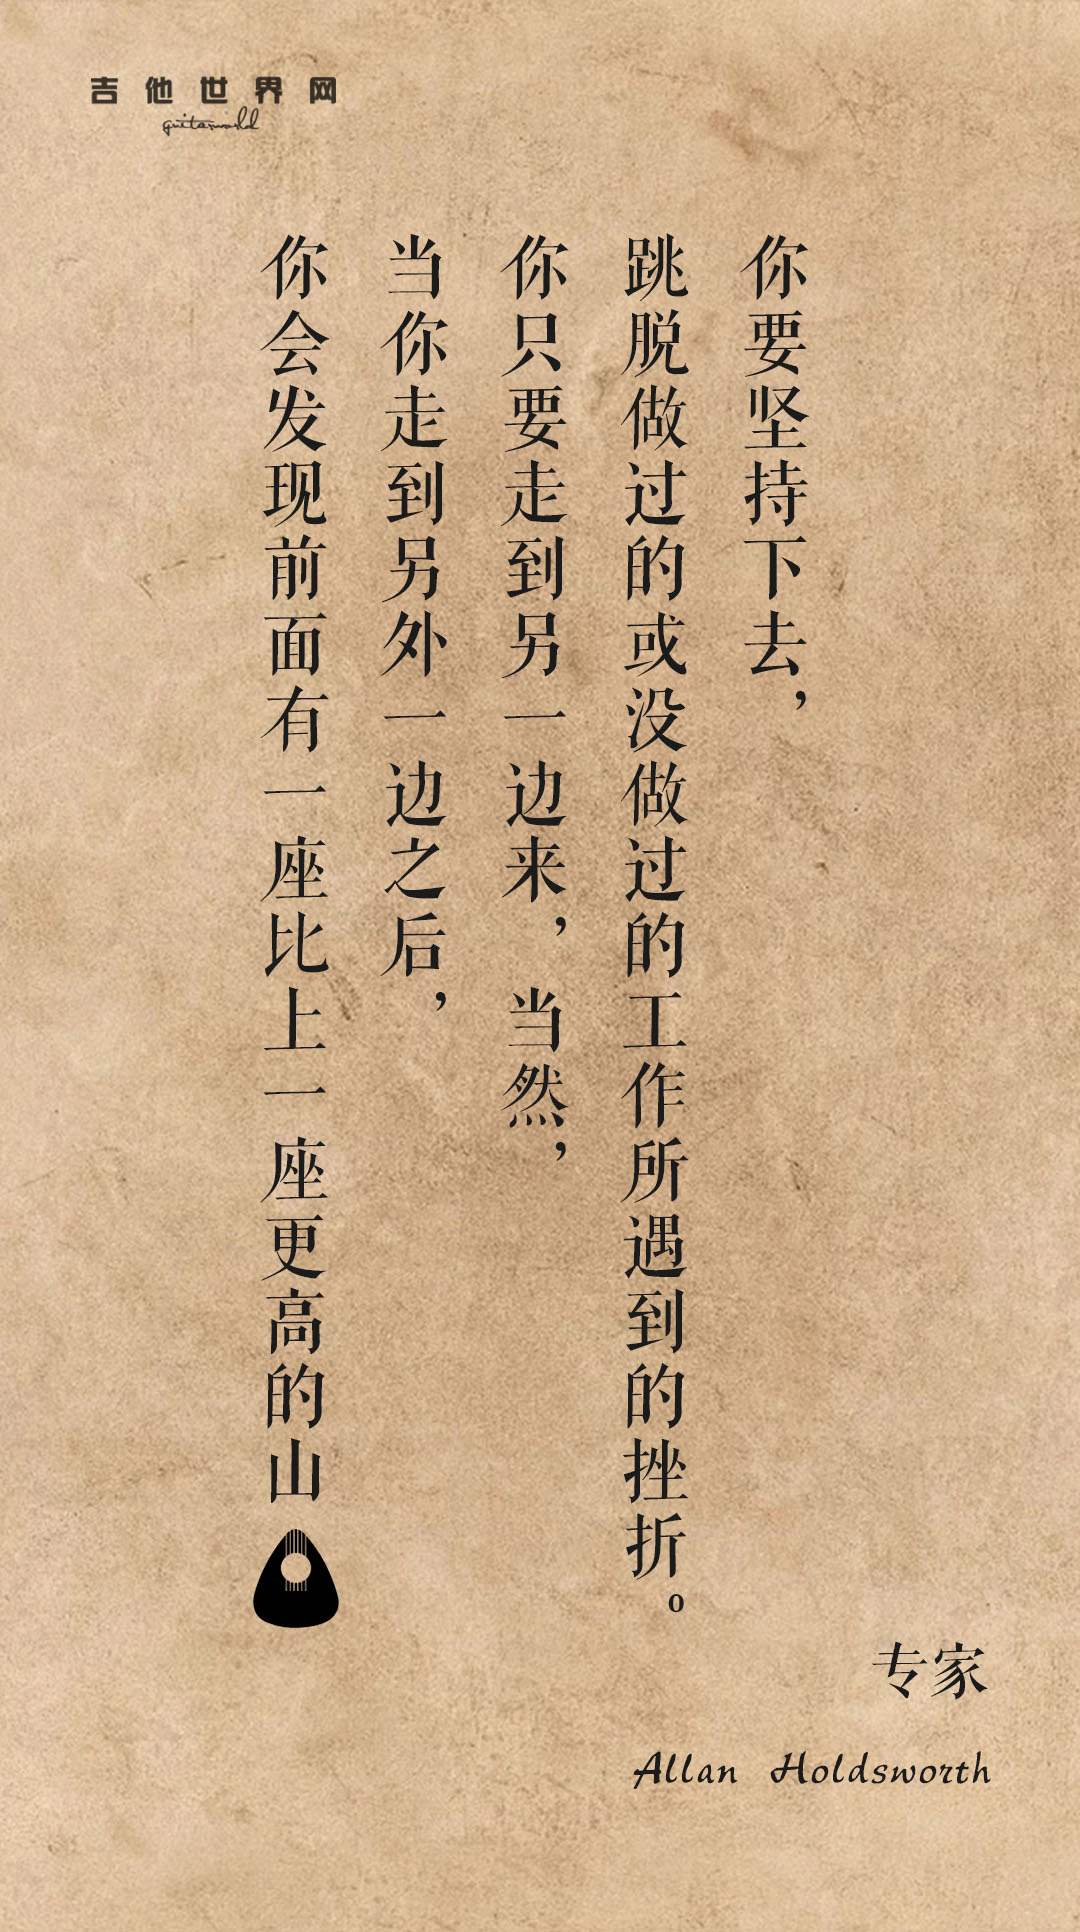 吉他世界网
guitarworld
你要坚持下去，
跳脱做过的或没做过的工作所遇到的挫折。
你只要走到另一边来，当然，
当你走到另外一边之后，
你会发现前面有一座比上一座更高的山
专家
Allan Holdsworth